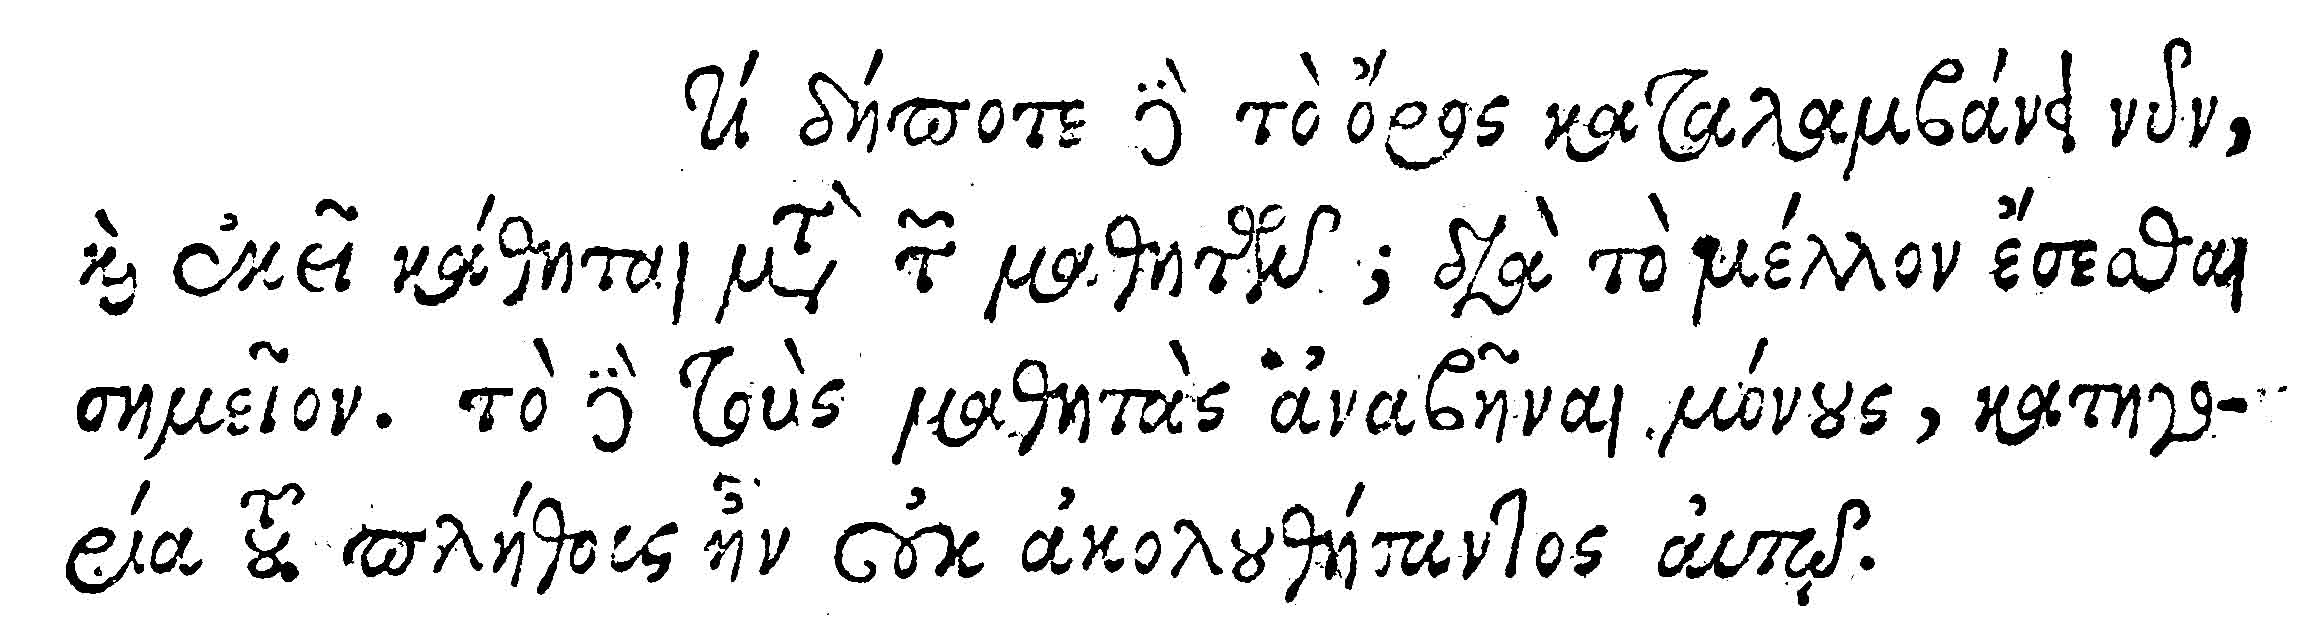 τί δήποτε δὲ τὸ ὄρος καταλαμβάνει νῦν,
καὶ ἐκεῖ κάθηται μετὰ τῶν μαθητῶν; διὰ τὸ μέλλον ἔσεσθαι
σημεῖον. τὸ δὲ τοὺς μαθητὰς ἀναβῆναι μόνους, κατηγο-
ρία τοῦ πλήθους ἦν οὐκ ἀκολουθήσαντος αὐτῷ.